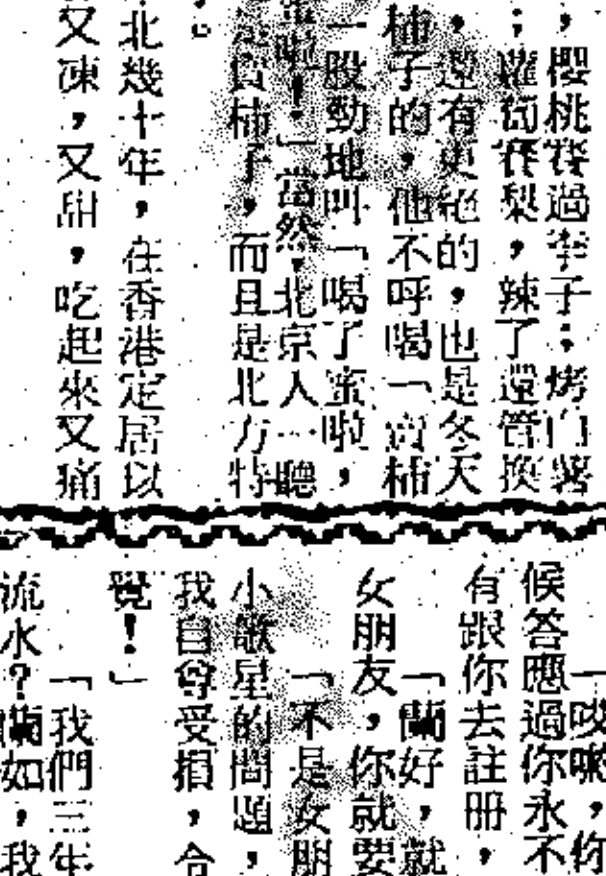 ，櫻桃賽過李子；烤白薯
；蘿蔔賽梨，辣了還管換
，還有更絕的，也是冬天
柿子的，他不呼喝「賣柿
一股勁地叫「喝了蜜啦，
蜜啦！」當然，北京人一聽
是賣柿子，而且是北方特
。
北幾十年，在香港定居以
又凍，又甜，吃起來又痛
「哎喲，你
候答應過你永不
有跟你去註册，
「蘭好，就
女朋友，你就要
「不是女朋
小歌星的問題，
我自尊受損，合
覺！」
「我們三年
流水？蘭如，我